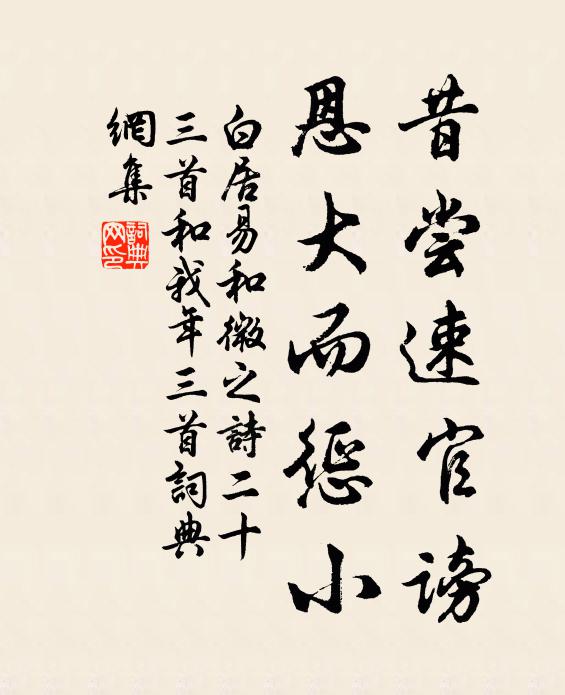 昔尝速官谤
恩大而惩小
白居易和微之詩二十
三首和我年三首詞典
網集
詞典
网印